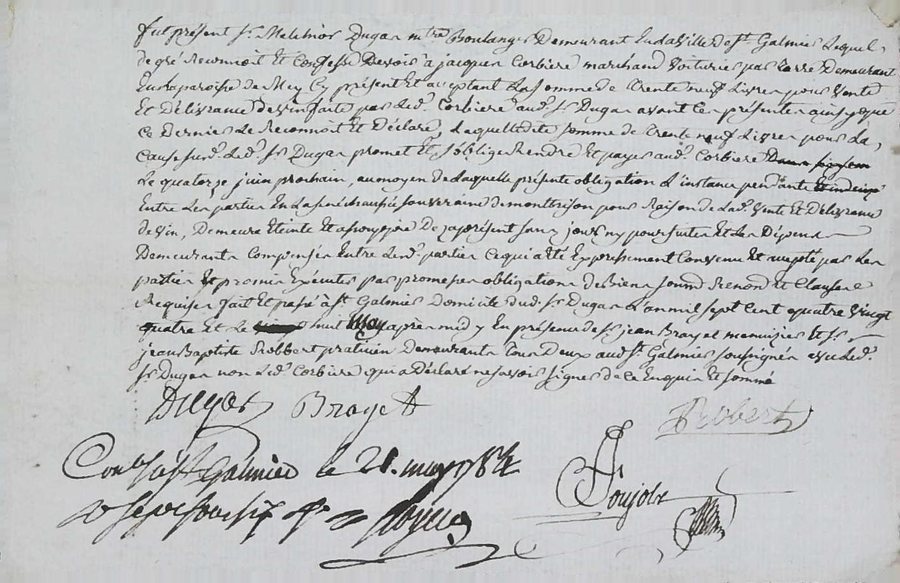 fut présent Sr. Melchior Dugas mtre Boulanger Demeurant En la Ville de st. Galmier Lequel
de gré Reconnoit Et Confesse Devoir à jacques Corbiere marchand Voiturier par terre Demeurant
En la paroisse de Mey Cy présent Et acceptant La Somme de trente neuf Livres pour Vente
Et Délivrance de vin faite par Led. Corbiere aud. Sr. Dugas avant Les présentes ainsy que
Ce Dernier Le Reconnoit Et Déclare, Laquelle dite Somme de trente neuf Livres pour La
Cause susd. Led. Sr. Dugas promet Et s'oblige Rendre Et payer aud. Corbiere
Le quatorze juin prochain, au moyen de laquelle présente obligation L'instance pendante
Entre Les parties En La sénéchaussée souveraine de montbrison pour Raison de Lad. Vente Et Délivrance
de Vin, Demeure Eteinte Et assoupie De z a présent sans pouvoir poursuites Et Les Dépens
Demeurants Compensés Entre Lesd. parties Ce qui a Eté Expressement Convenu Et accepté par Les
parties Et promis Exécuter par promesses obligation de Biens soumd. Renond. Et Clauses
Requises fait Et passé à St. Galmier Domicile dud. Sr. Dugas L'an mil sept Cent quatre Vingt
quatre Et Le huit May après midy En présence de Sr. jean Brayet menuisier Et Sr.
jean Baptiste Robbert praticien Demeurants tous Deux aud. St. Galmier soussignés avec Led.
Sr. Dugas non Led. Corbiere qui a Déclaré ne savoir signer de ce Enquis Et sommé
Dugas Brayet Robert
Conlé à st. Galmier le 21. may 1784